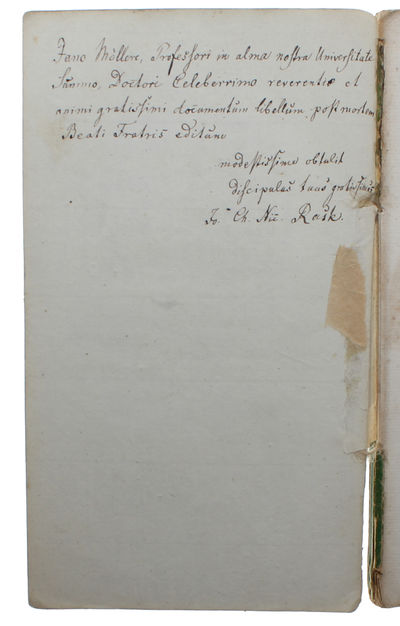 Jano Möllero, Professori in alma nostra Universitate
Summo, Doctori Celeberrimo reverentiæ et
animi gratissimi documentum libellum, post mortem
Beati Fratris editum
modestissime obtulit
discipulus tuus gratissimus
Jo. Ch. Nic. Rask.